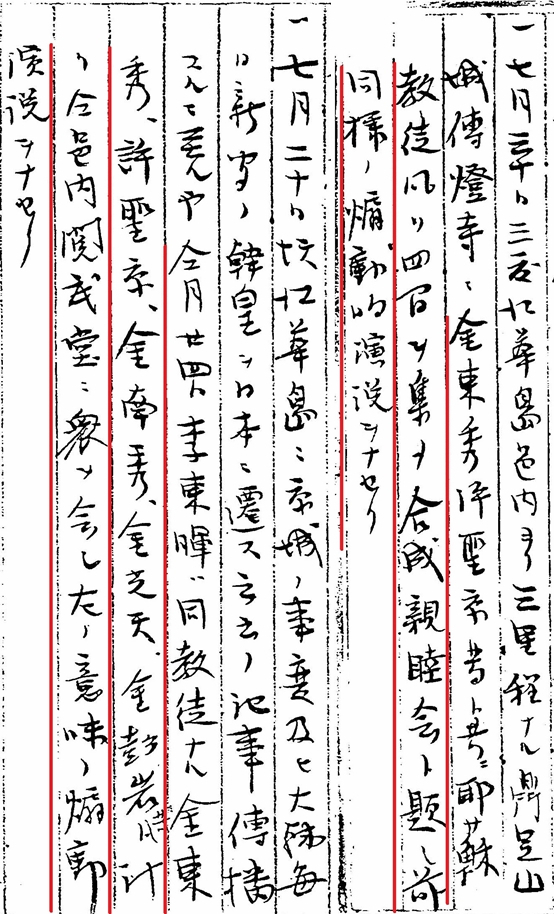 一 七月三十日三度江華島邑内ヨリ三里程ナル鼎足山
城傳燈寺ニ金東秀許聖京等ト共ニ耶蘇
教徒凡ソ四百ヲ集メ合成親睦会ト題シ前
同様ノ煽動的演説ヲナセリ
一 七月二十日頃江華島ニ京城ノ事変及ヒ大阪毎
日新聞ノ韓皇ヲ日本ニ遷ス云云ノ記事傳播
スルヤ仝月廿四日李東暉ハ同教徒ナル金東
秀、許聖京、金南秀、金光天、金彭岩
リ仝邑内閲武堂ニ衆ヲ会シ左ノ意味ノ煽動
演説ヲナセリ